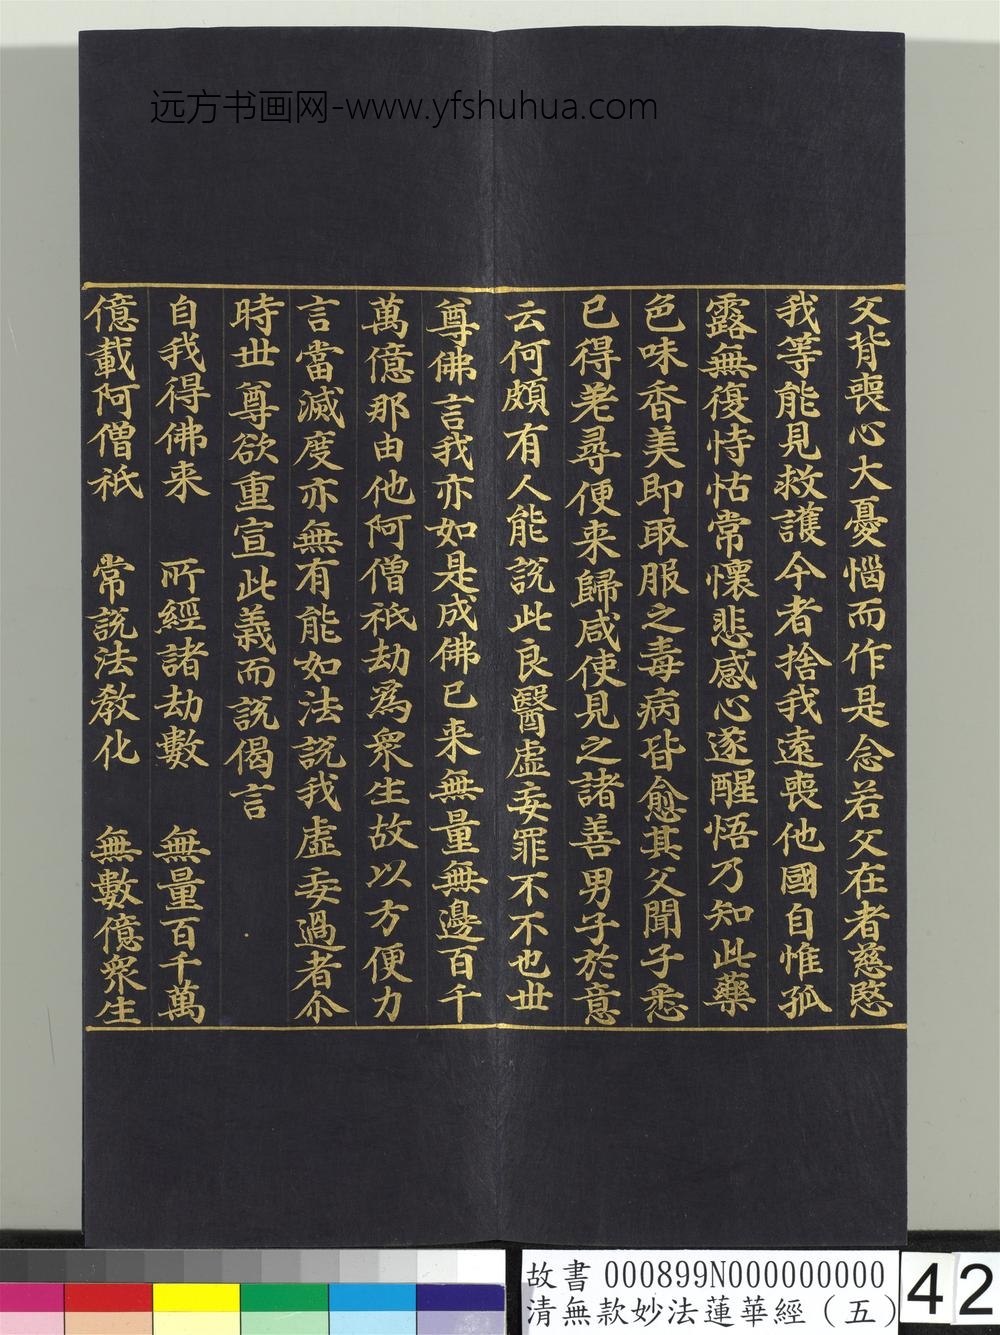 远方书画网-www.yfshuhua.com
父背喪心大憂惱而作是念若父在者慈愍
我等能見救護今者捨我遠喪他國自惟孤
露無復恃怙常懷悲感心遂醒悟乃知此藥
色味香美即取服之毒病皆愈其父聞子悉
已得差尋便来歸咸使見之諸善男子於意
云何頗有人能說此良醫虛妄罪不不也世
尊佛言我亦如是成佛已来無量無邊百千
萬億那由他阿僧祇劫為衆生故以方便力
言當滅度亦無有能如法說我虛妄過者尒
時世尊欲重宣此義而說偈言
自我得佛来　所經諸劫數　無量百千萬
億載阿僧祇　常說法教化　無數億衆生
故書 000899N000000000
清無款妙法蓮華經（五）
42